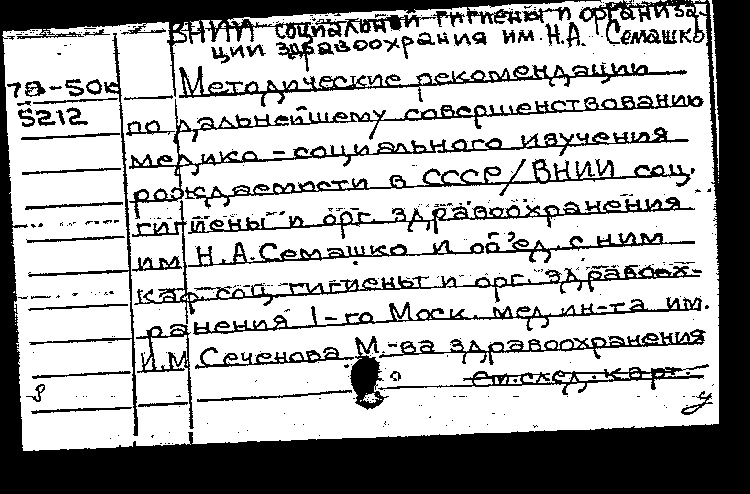 ВНИИ социальной гигиены и организа-
ции здравоохрания им. Н.А. Семашко
78-50к
5212
Методические рекомендации
по дальнейшему совершенствованию
медико-социального изучения
рождаемости в СССР/ВНИИ соц.
гигиены и орг. здравоохранения
им Н.А. Семашко и об'ед. с ним
каф. соц. гигиены и орг. здравоох-
ранения 1-го Моск. мед. ин-та им.
И.М Сеченова М.-ва здравоохранения
см. след. карт.